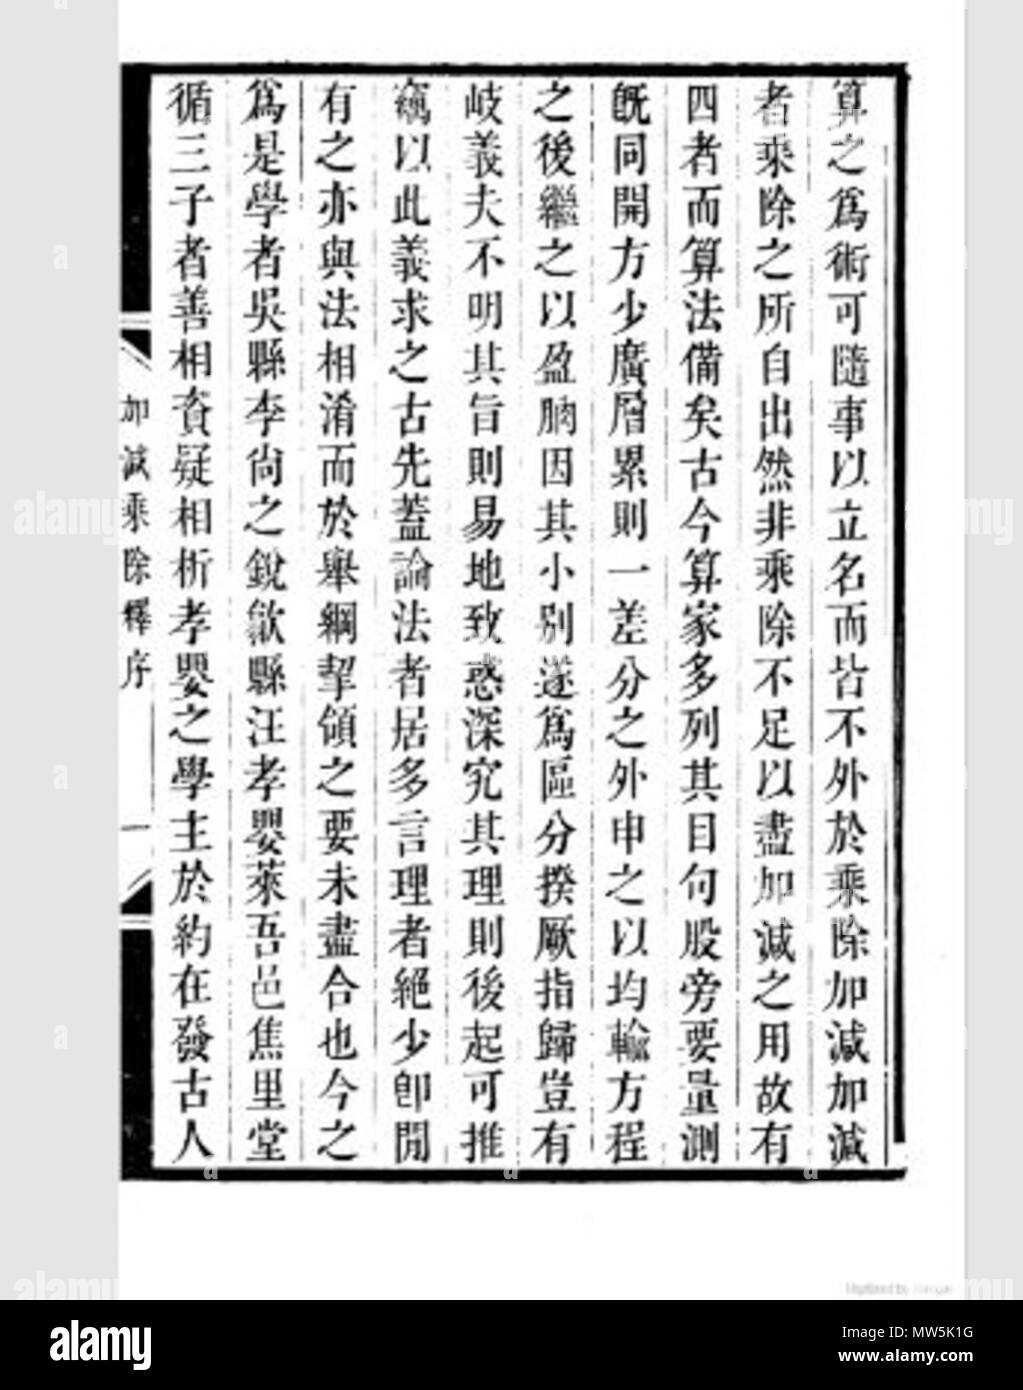 算之爲術可隨事以立名而皆不外於乘除加減加減
者乘除之所自出然非乘除不足以盡加減之用故有
四者而算法備矣古今算家多列其目句股旁要量測
旣同開方少廣層累則一差分之外申之以均輸方程
之後繼之以盈朒因其小別遂爲區分揆厥指歸豈有
岐義夫不明其旨則易地致惑深究其理則後起可推
竊以此義求之古先蓋論法者居多言理者絕少卽閒
有之亦與法相淆而於舉綱挈領之要未盡合也今之
爲是學者吳縣李尙之銳歙縣汪孝嬰萊吾邑焦里堂
循三子者善相資疑相析孝嬰之學主於約在發古人
加減乘除釋序
一
alamy
Image ID: MW5K1G
www.alamy.com